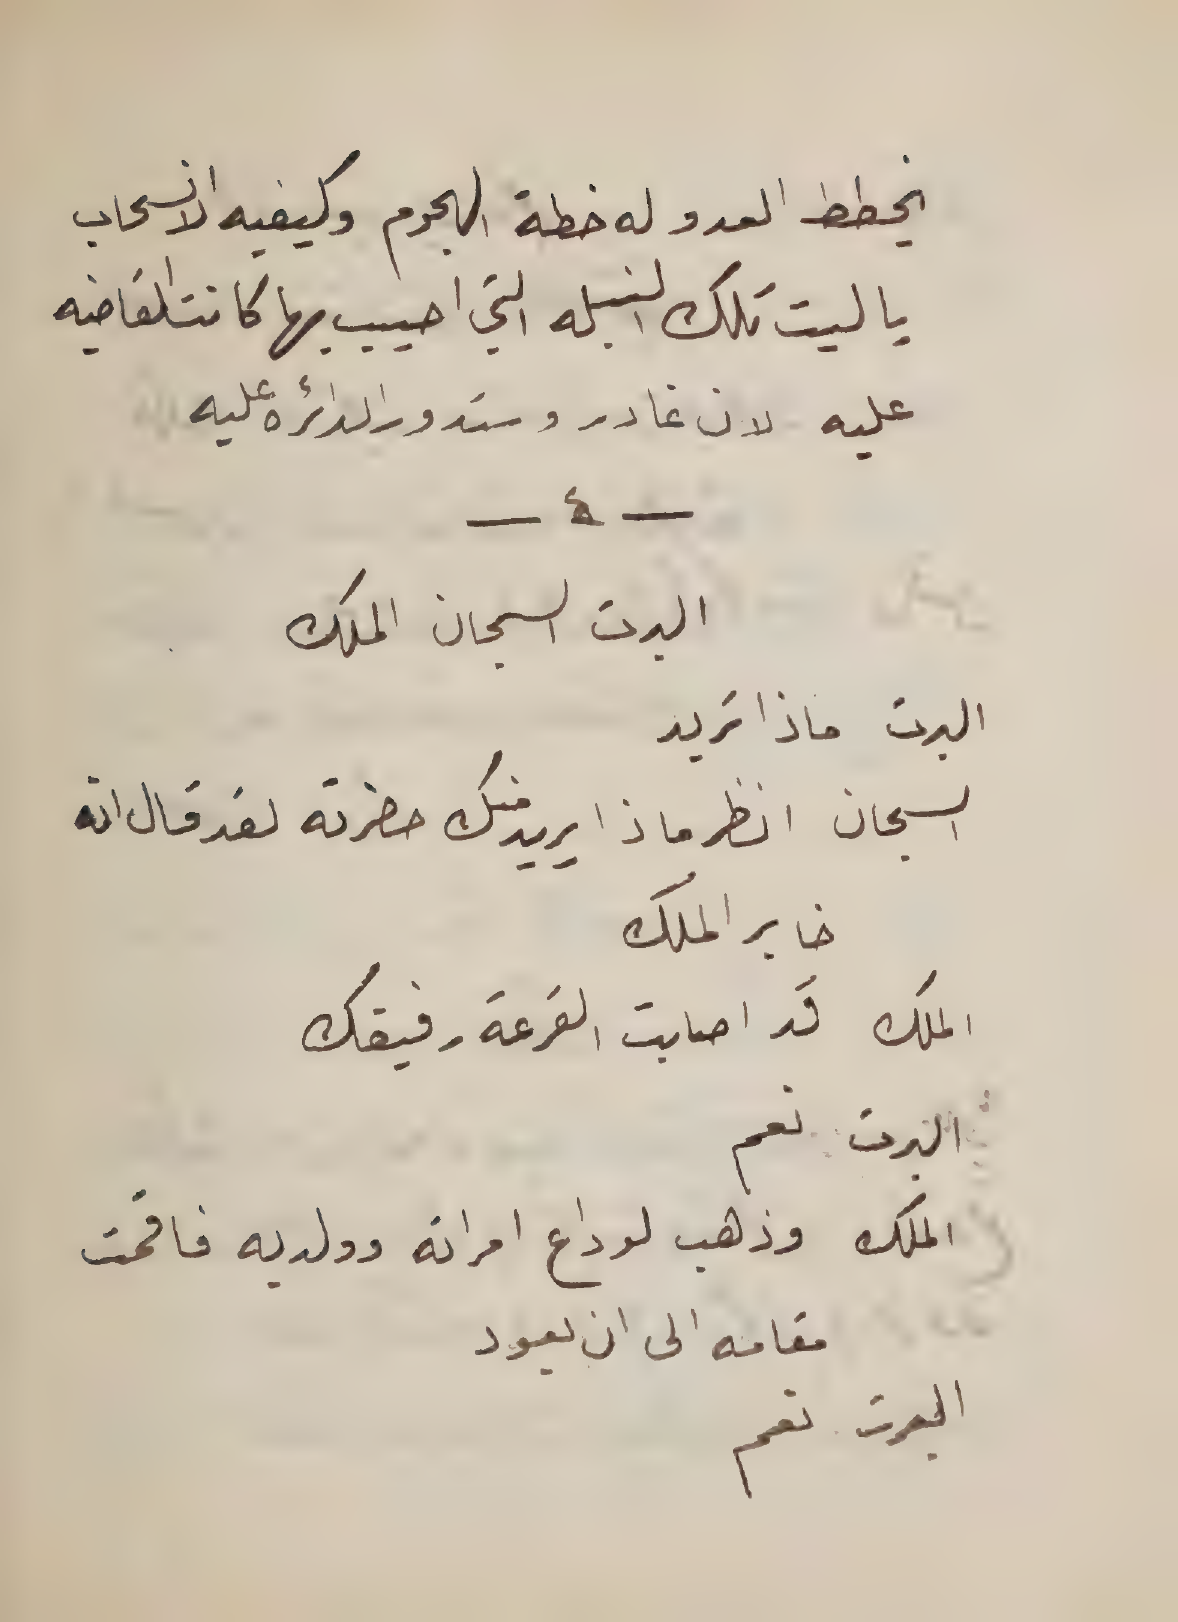 يخطط العدو له خطة الهجوم وكيفيه الانسحاب
يا ليت تلك النبله التي اصيب بها كانت القاضيه
عليه لان غادر وستدور الدائره عليه
— ٤ —
البرت السجان الملك
البرت ماذا تريد
السجان انظر ماذا يريد منك حضرته لقد قال انه
خابر الملك
الملك قد اصابت القرعة رفيقك
البرت نعم
الملك وذهب لوداع امراته وولديه فاقمت
مقامه الى ان يعود
البرت نعم